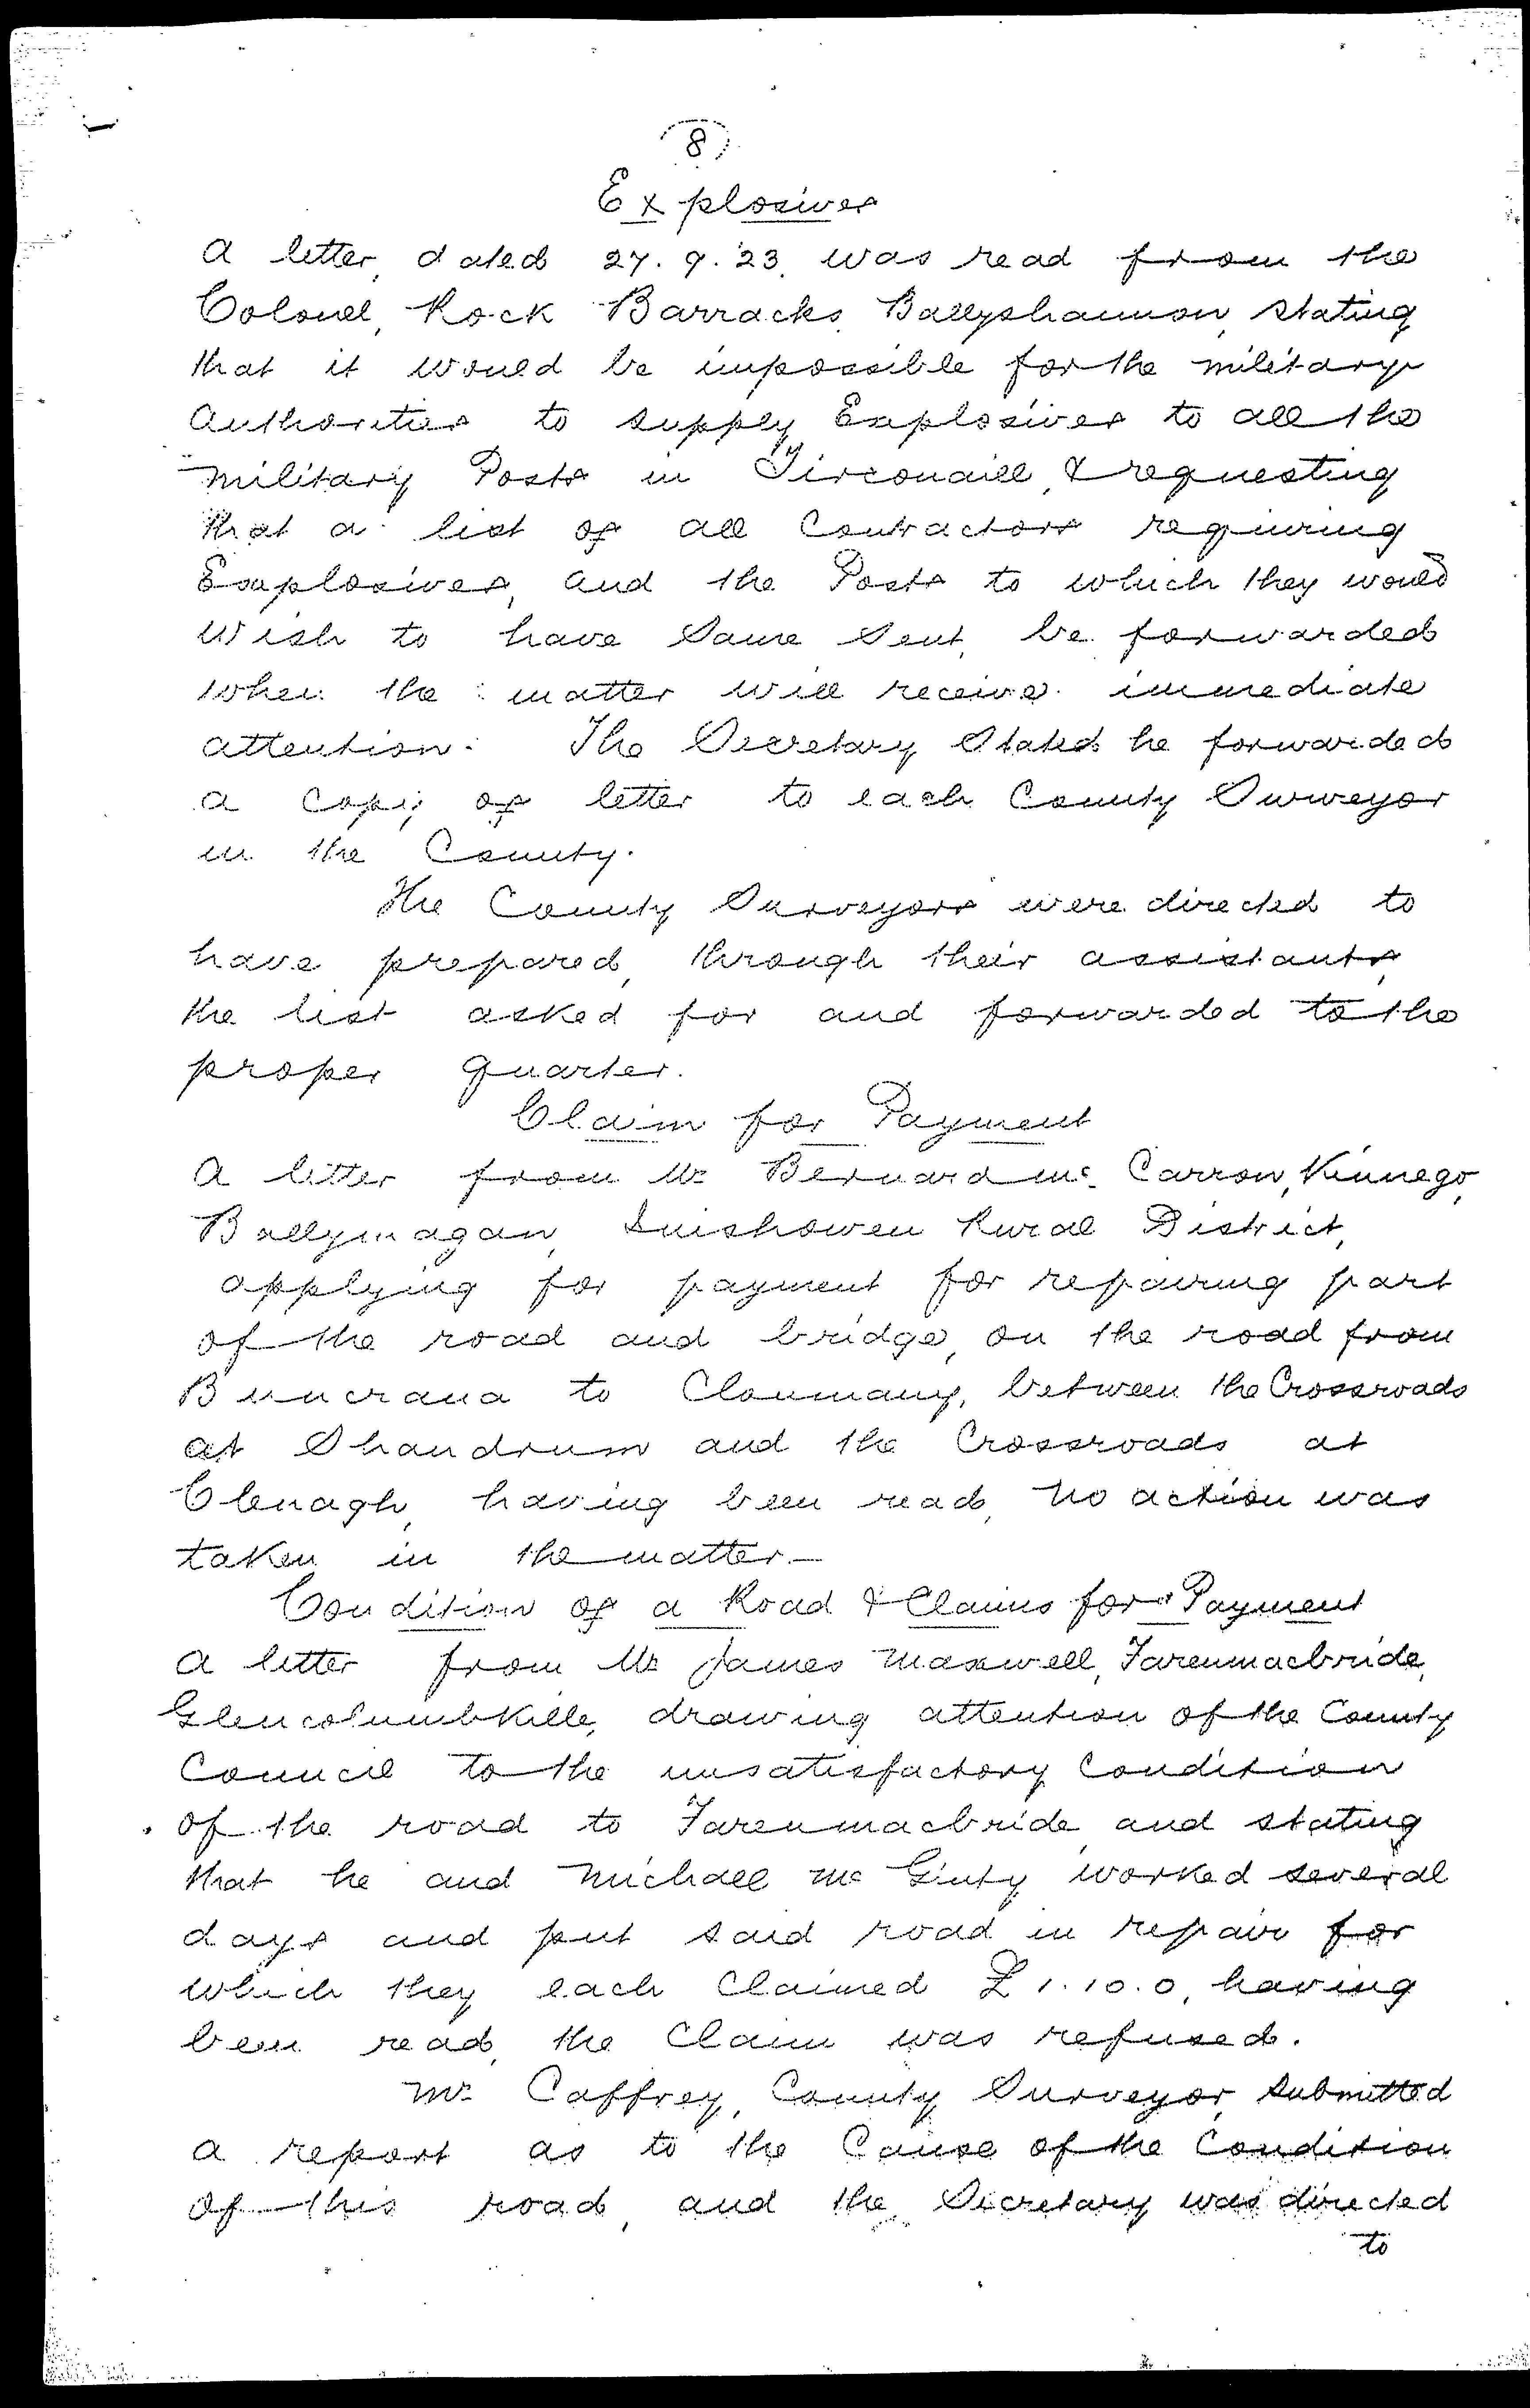 8
Explosives
A letter, dated 27.9.'23, was read from the
Colonel, Rock Barracks, Ballyshannon, stating
that it would be impossible for the military
Authorities to supply Explosives to all the
military Posts in Tirconaill, & requesting
that a list of all Contractors requiring
Explosives, and the Posts to which they would
wish to have same sent, be forwarded
when the matter will receive immediate
attention. The Secretary stated he forwarded
a copy of letter to each County Surveyor
in the County.
The County Surveyors were directed to
have prepared, through their assistants,
the list asked for and forwarded to the
proper quarter.
Claim for Payment
A letter from Mr Bernard Mc Carron, Kinnego,
Ballymagan, Inishowen Rural District,
applying for payment for repairing part
of the road and bridge, on the road from
Buncrana to Clonmany, between the Crossroads
at Shandrum and the Crossroads at
Clenagh, having been read, no action was
taken in the matter.—
Condition of a Road & Claims for Payment
A letter from Mr James Maxwell, Farenmacbride,
Glencolumbkille, drawing attention of the County
Council to the unsatisfactory condition
of the road to Farenmacbride, and stating
that he and Michael Mc Ginty worked several
days and put said road in repair for
which they each claimed £1.10.0, having
been read, the claim was refused.
Mr Caffrey, County Surveyor, submitted
a report as to the cause of the condition
of this road, and the Secretary was directed
to